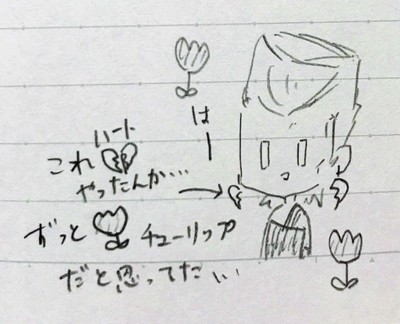 はー
ハート
これ
やったんか…
ずっと チューリップ
だと思ってたい…